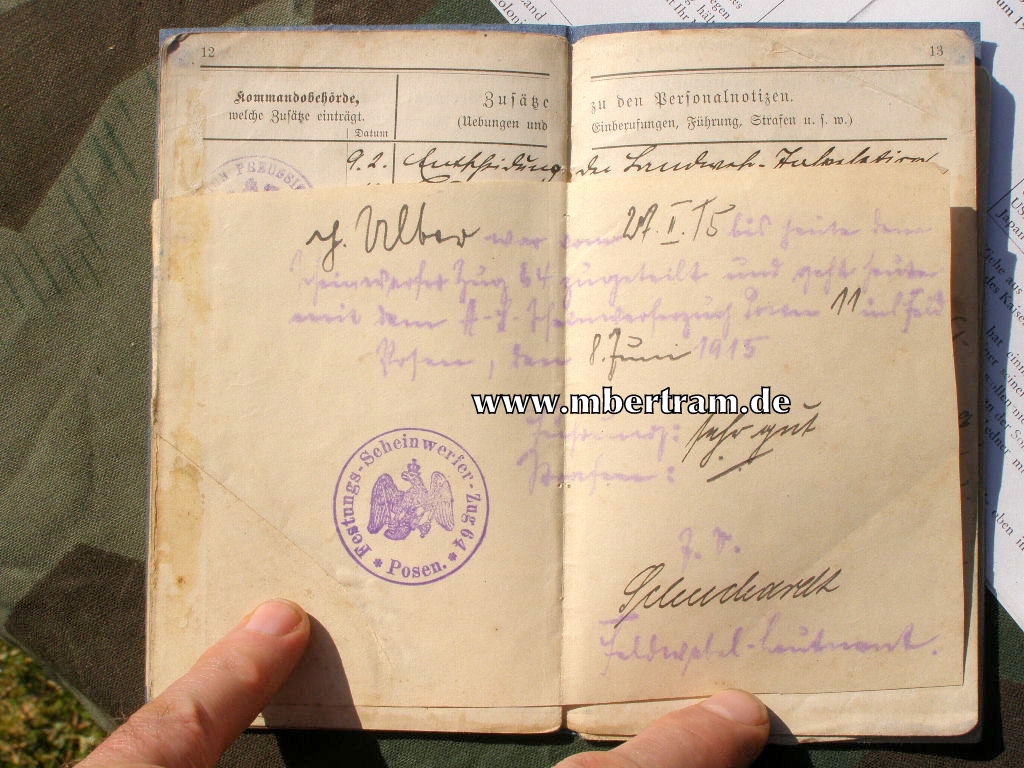 12
13
Kommandobehörde,
welche Zusätze einträgt.
Datum
Zusätze
(Uebungen und
zu den Personalnotizen.
Einberufungen, Führung, Strafen u. s. w.)
9.2. Entscheidung der Landweh-
PREUSSI
Ulber war vom 27. II. 15 bis heute dem
Scheinwerfer Zug 64 zugeteilt und geht heute
mit dem Scheinwerferzug Posen 11 ins Feld
Posen, den 8. Juni 1915
www.mbertram.de
Führung: sehr gut
Strafen:
Festungs-Scheinwerfer-Zug 64
* Posen. *
Schuchardt
Feldwebel-Leutnant.